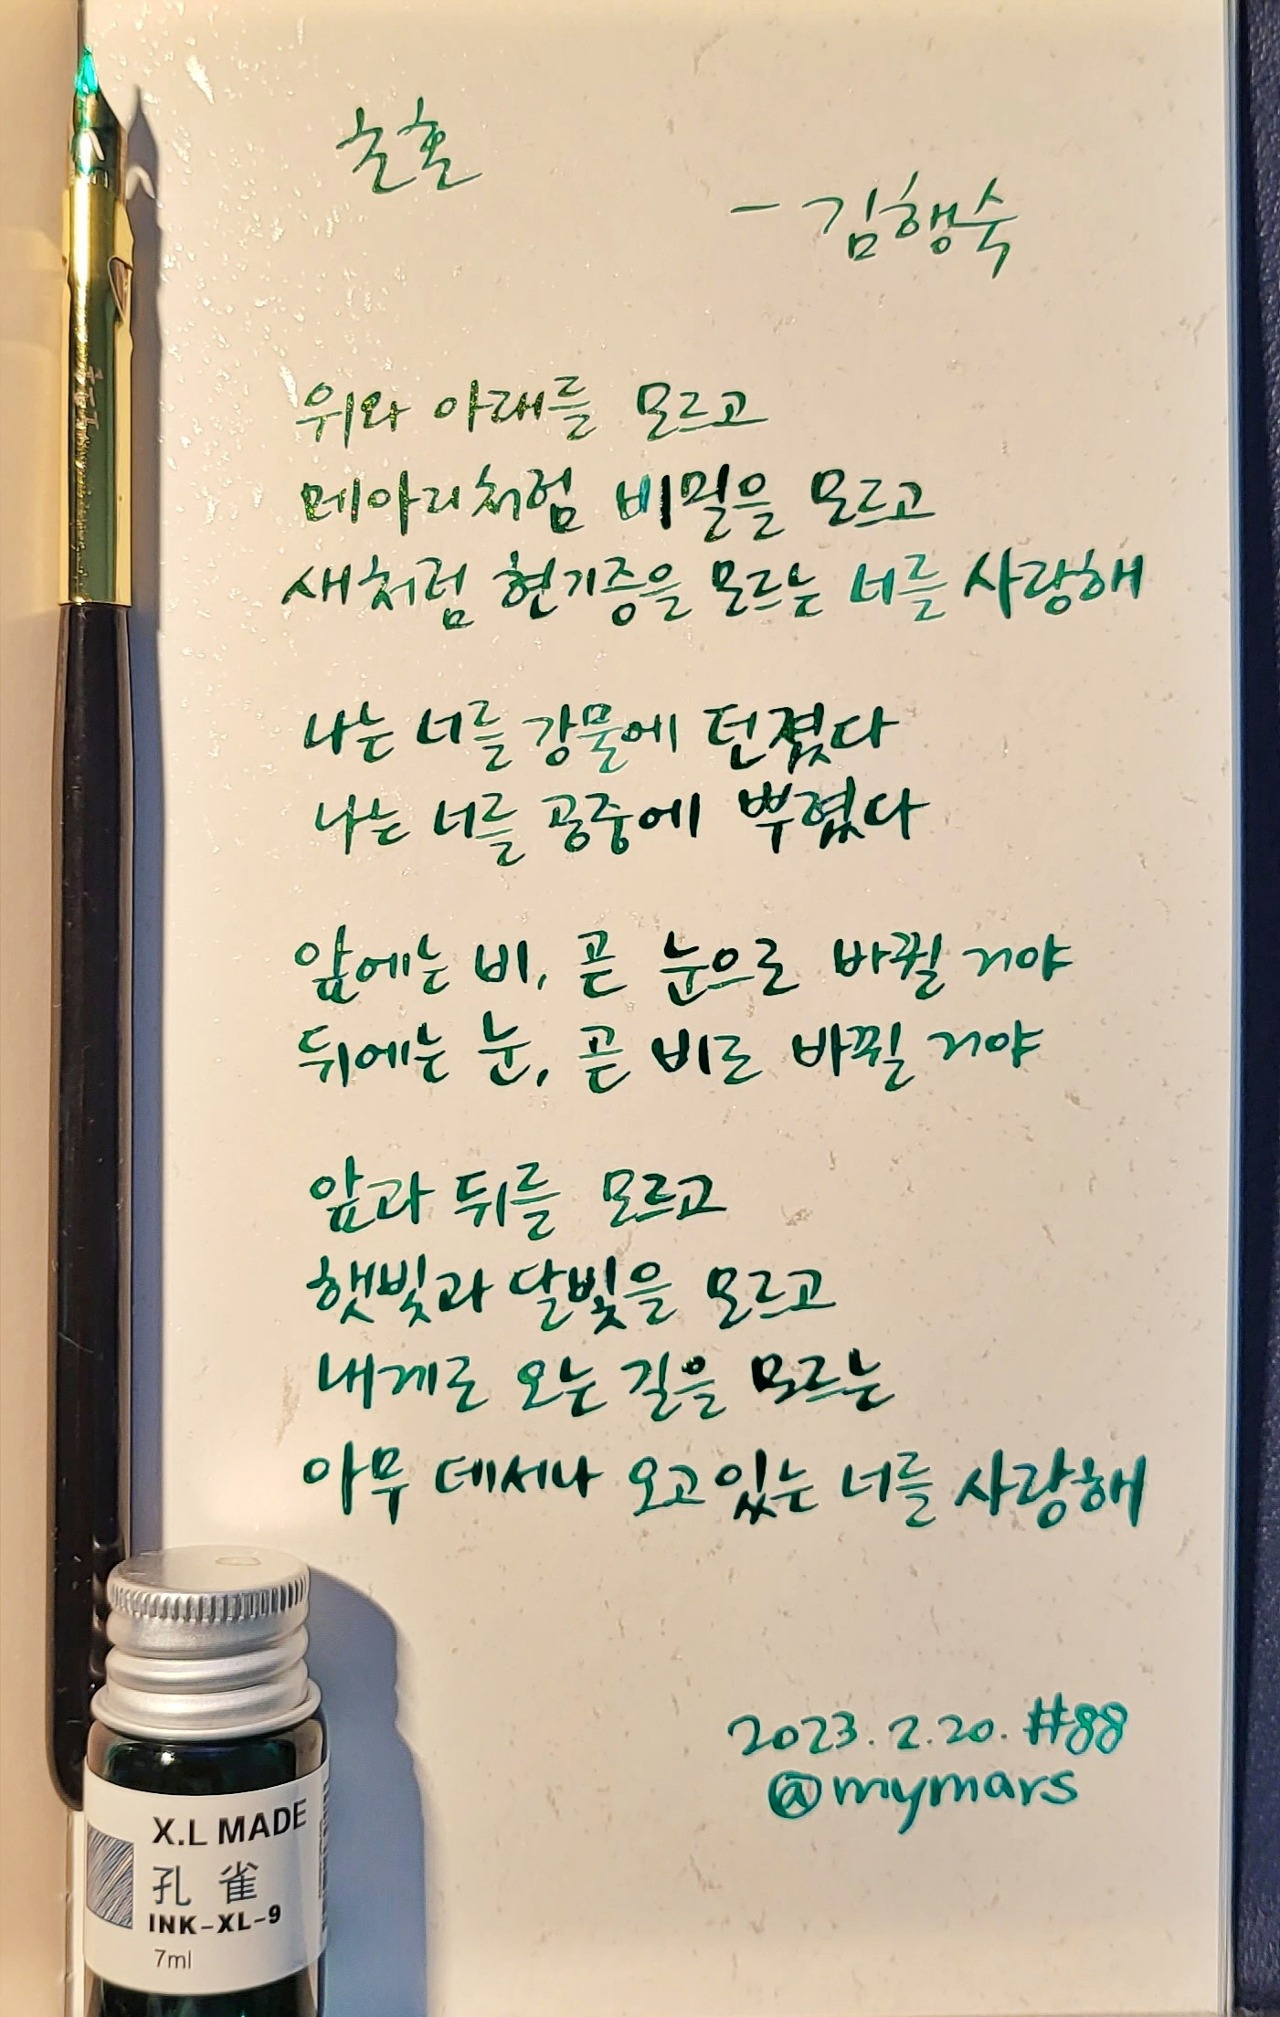 초혼
- 김행숙
위와 아래를 모르고
메아리처럼 비밀을 모르고
새처럼 현기증을 모르는 너를 사랑해
나는 너를 강물에 던졌다
나는 너를 공중에 뿌렸다
앞에는 비, 곧 눈으로 바뀔 거야
뒤에는 눈, 곧 비로 바뀔 거야
앞과 뒤를 모르고
햇빛과 달빛을 모르고
내게로 오는 길을 모르는
아무 데서나 오고 있는 너를 사랑해
2023.2.20. #88
@mymars
X.L MADE
孔雀
INK-XL-9
7ml